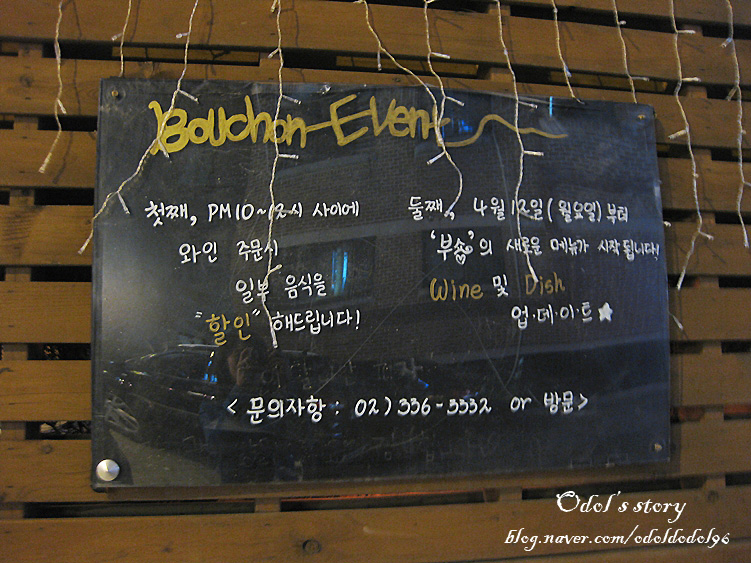 Bouchon Event
첫째, PM10~12시 사이에
와인 주문시
일부 음식을
"할인" 해드립니다!
둘째, 4월 12일(월요일)부터
'부숑'의 새로운 메뉴가 시작됩니다!
Wine 및 Dish
업·데·이·트★
<문의사항 : 02) 336-3332 or 방문>
Odol's story
blog.naver.com/odoldodol96